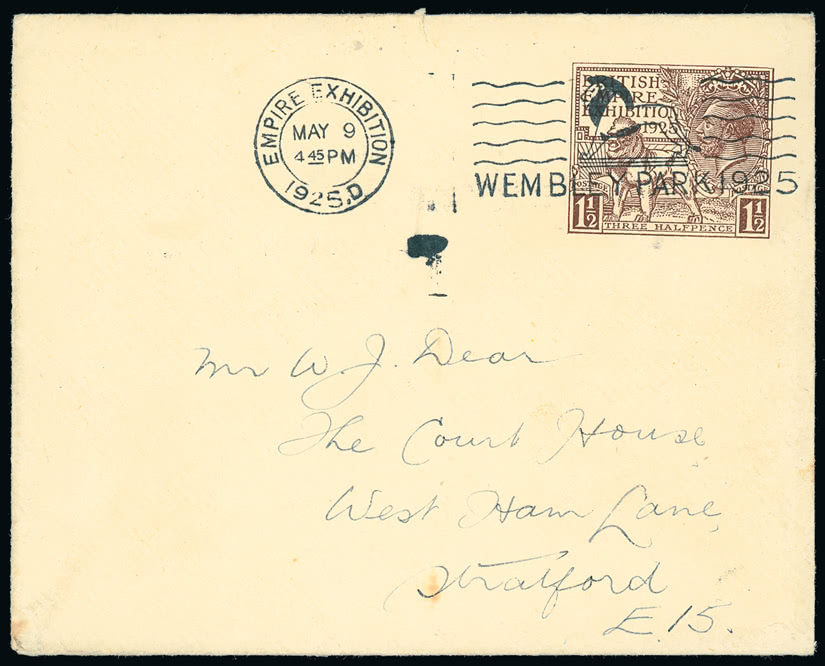 EMPIRE EXHIBITION
MAY 9
4 45 PM
1925.D
BRITISH
EMPIRE
EXHIBITION
1925
WEMBLEY PARK 1925
1½
THREE HALFPENCE
1½
Mr W J. Dear
The Court House
West Ham Lane,
Stratford
E. 15.